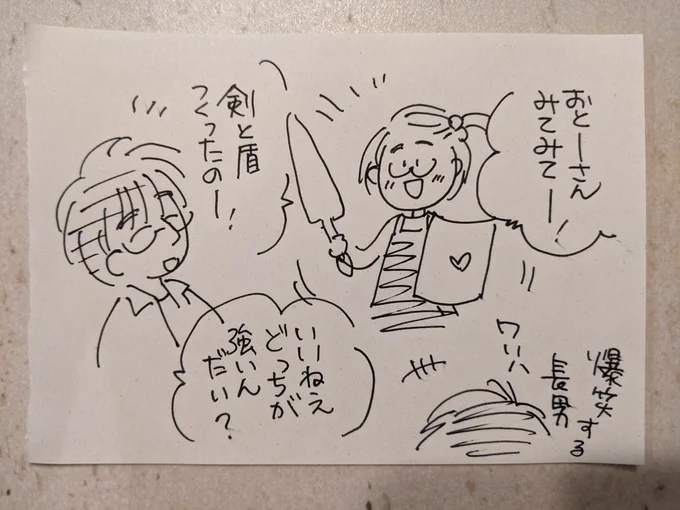 おとーさん
みてみてー!
剣と盾
つくったのー!
いいねえ
どっちが
強いん
だい?
ワハハ
爆笑する
長男